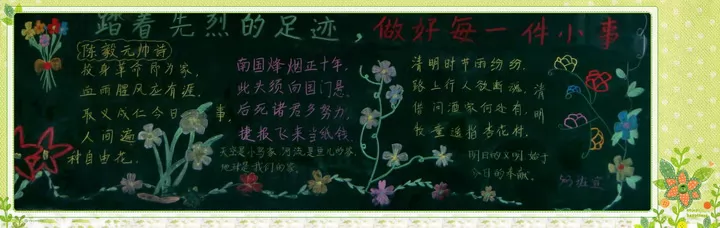 踏着先烈的足迹，做好每一件小事
陈毅元帅诗
投身革命即为家，
血雨腥风应有涯，
取义成仁今日事，
人间遍
种自由花。
南国烽烟正十年，
此头须向国门悬，
后死诸君多努力，
捷报飞来当纸钱
天空是小鸟家 河流是鱼儿的家
地球是我们的家
清明时节雨纷纷，
路上行人欲断魂，
借问酒家何处有，
牧童遥指杏花村，
清
明
明日的文明始于
今日的奉献，